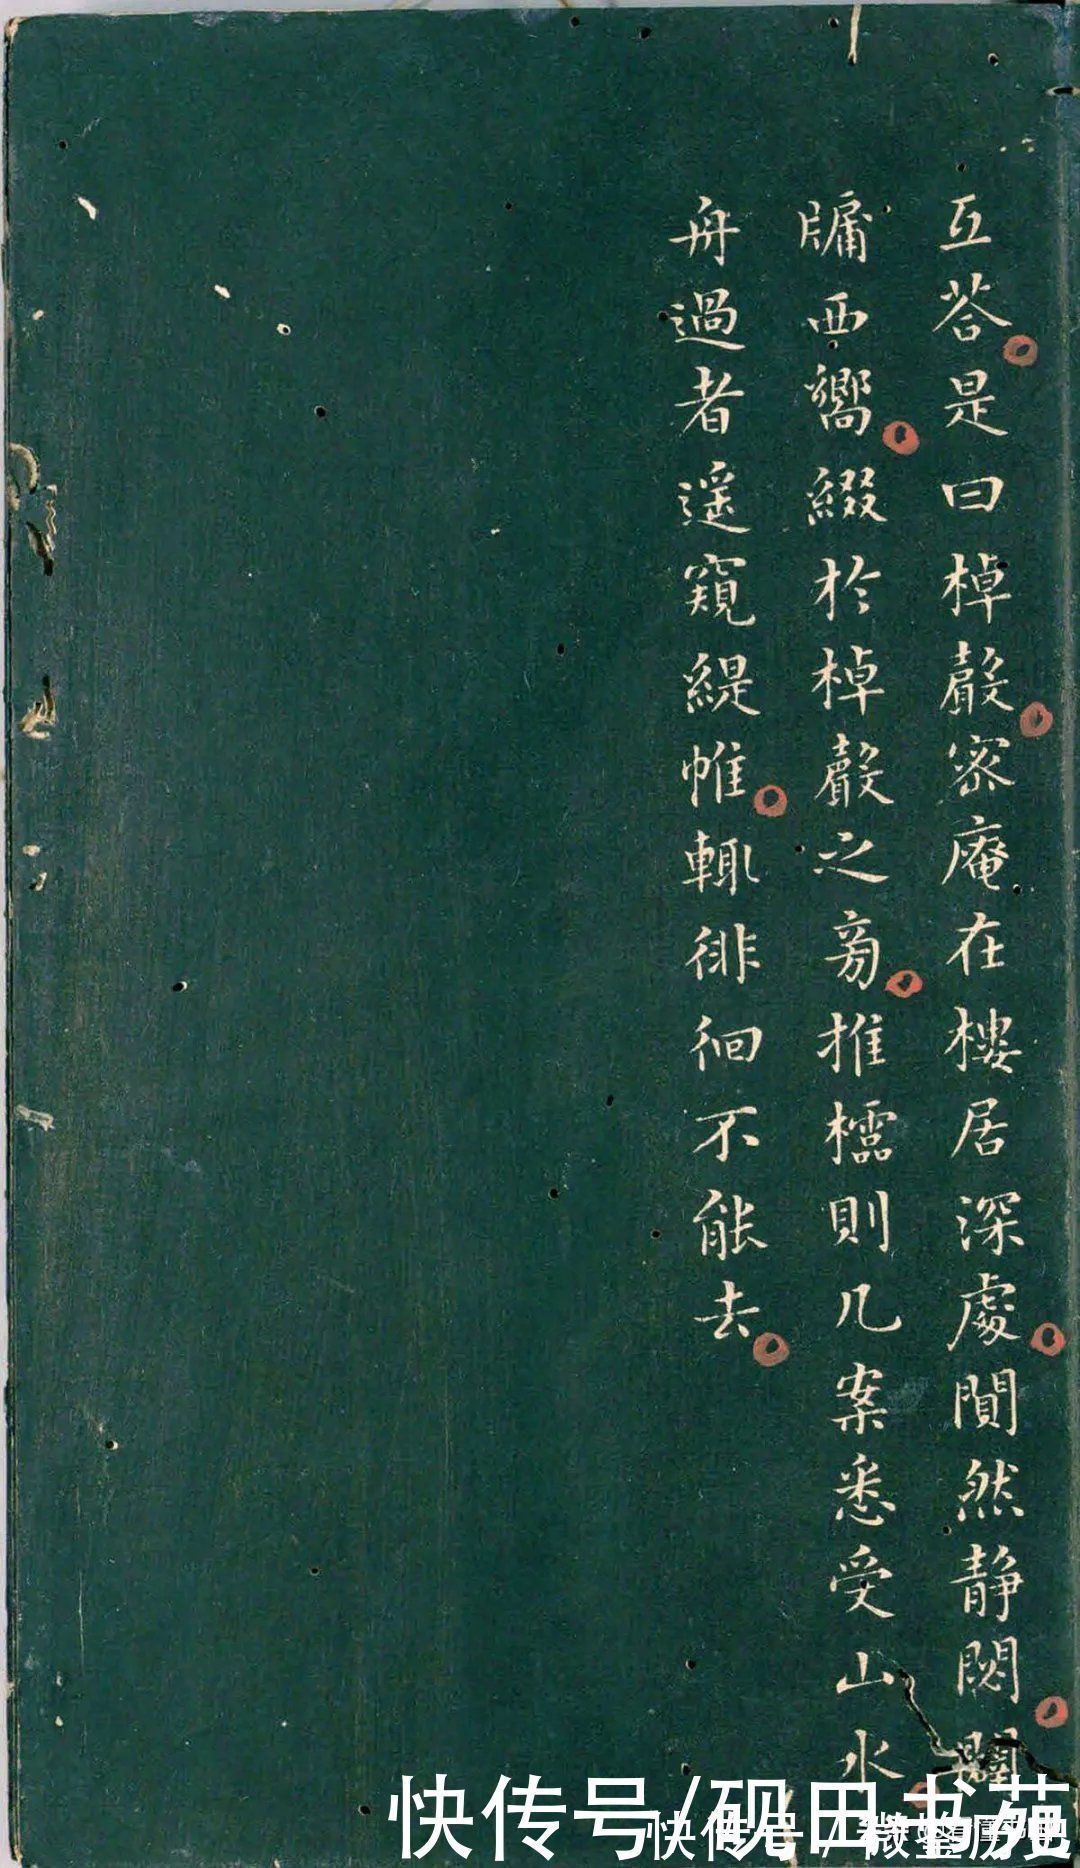 互荅是曰棹㲈密庵在樓居深處閴然静閟闢
牖西嚮綴於棹㲈之旁推櫺則几案悉受山水
舟過者遥窺緹帷輒徘徊不能去
快传号/砚田书苑
快传号/